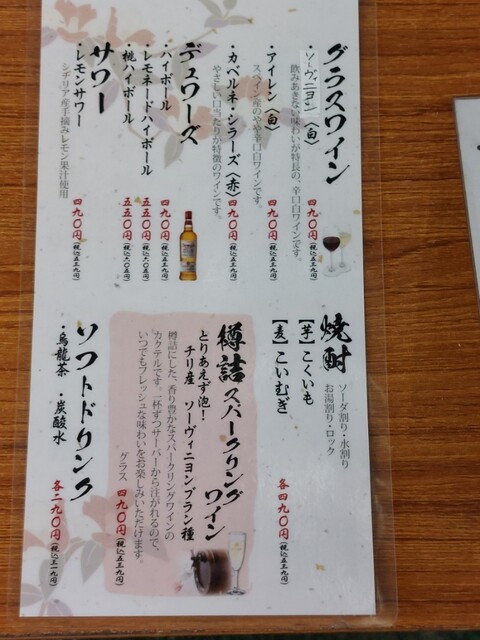 グラスワイン
・ソーヴィニヨン〈白〉 四九〇円(税込五三九円)
飲みあきない味わいが特長の、辛口白ワインです。
・アイレン〈白〉 四九〇円(税込五三九円)
スペイン産のやや辛口白ワインです。
・カベルネ・シラーズ〈赤〉 四九〇円(税込五三九円)
やさしい口当たりが特徴のワインです。
デュワーズ
・ハイボール 四九〇円(税込五三九円)
・レモネードハイボール 五五〇円(税込六〇五円)
・桃ハイボール 五五〇円(税込六〇五円)
サワー
・レモンサワー 四九〇円(税込五三九円)
シチリア産手摘みレモン果汁使用
焼酎
ソーダ割り・水割り
お湯割り・ロック
【芋】こくいも
【麦】こいむぎ
各四九〇円(税込五三九円)
樽詰スパークリング
ワイン
とりあえず泡！
チリ産 ソーヴィニヨンブラン種
樽詰にした、香り豊かなスパークリングワインの
カクテルです。一杯ずつサーバーから注がれるので、
いつでもフレッシュな味わいをお楽しみいただけます。
グラス 四九〇円(税込五三九円)
ソフトドリンク
・烏龍茶 ・炭酸水 各二九〇円(税込三一九円)